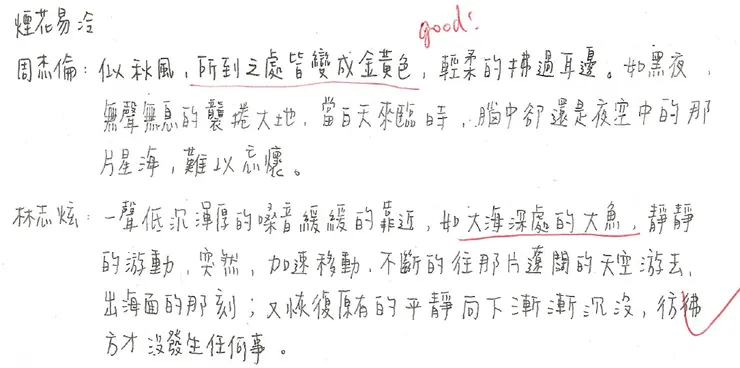 煙花易冷
good!
周杰倫：似秋風，所到之處皆變成金黃色，輕柔的拂過耳邊。如黑夜，
無聲無息的襲捲大地，當白天來臨時，腦中卻還是夜空中的那
片星海，難以忘懷。
林志炫：一聲低沉渾厚的嗓音緩緩的靠近，如大海深處的大魚，靜靜
的游動，突然，加速移動，不斷的往那片遼闊的天空游去，
出海面的那刻；又恢復原有的平靜向下漸漸沉沒，彷彿
方才沒發生任何事。